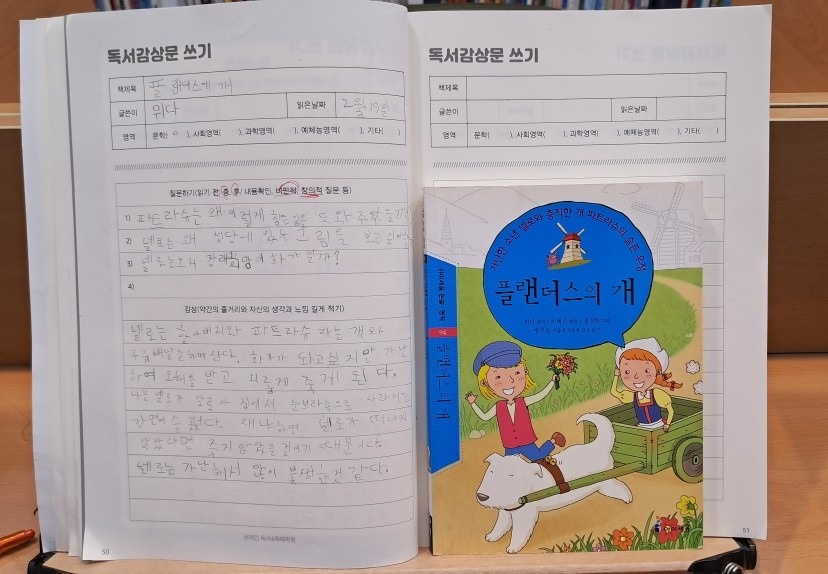 독서감상문 쓰기
책제목 플 랜더스에 개
글쓴이 위다 읽은날짜 2월 19일
영역 문학( o ), 사회영역( ), 과학영역( ), 예체능영역( ), 기타( )
질문하기(읽기 전, 중, 후/ 내용확인, 비판적, 창의적 질문 등)
1) 파트라슈는 왜 이렇게 힘든 도와주었을까?
2) 넬로는 왜 성당에 있는 그림을 보고싶어
3) 넬로는 장래희망이 화가 일까?
4)
감상(약간의 줄거리와 자신의 생각과 느낌 길게 적기)
넬로는 할아버지와 파트라슈 라는 개와
우유배달을하며 산다. 화가가 되고싶지만 가난
하여 오해를 받고 외롭게 죽게 된다.
나는 넬로가 집에서 눈보라속으로 사라지는
장면이 슬펐다. 왜냐하면 넬로가 떠나지
않았다면 죽지않았을것이기 때문이다.
넬로는 가난해서 많이 불쌍한것 같다.
브레인 독서&독해학원
50
독서감상문 쓰기
책제목
글쓴이 읽은날짜
영역 문학( ), 사회영역( ), 과학영역( ), 예체능영역( ), 기타( )
51
가난한 소년 넬로와 충직한 개 파트라슈의 슬픈 우정
플랜더스의 개
플랜더스의 개